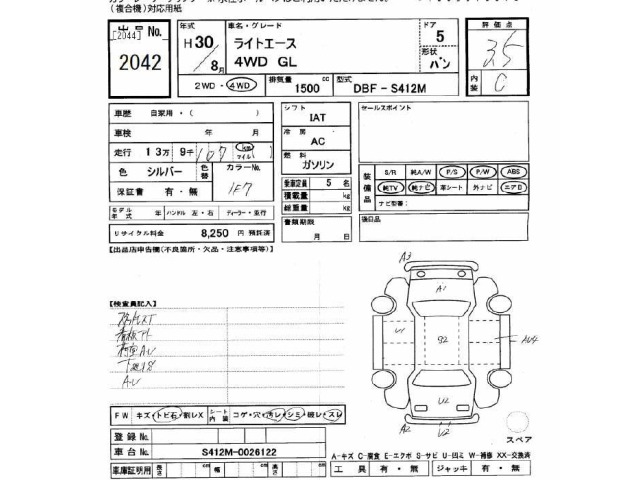 (複合機)対応用紙
出品No.
[2044]
2042
年式
H30/8月
車名・グレード
ライトエース
4WD GL
ドア
5
形状
バン
評価点
3.5
内装
C
2WD・4WD
排気量
1500 cc
型式
DBF-S412M
車歴 自家用・( )
車検 年 月
走行 13万9千107 km マイル
色 シルバー 色替 カラーNo. 1F7
保証書 有・無
シフト
IAT
冷房
AC
燃料
ガソリン
乗車定員 5 名
積載量 kg
総重量 kg
書類期限
月 日
セールスポイント
装備品
S/R 純A/W P/S P/W ABS
純TV 純ナビ 革シート 外ナビ エアB
ナビ型番:
モデル年式 年 ハンドル 左・右 ディーラー・並行
リサイクル料金 8,250 円 預託済
【出品店申告欄(不良箇所・欠品・注意事項等)】
【検査員記入】
下廻りS
AU
A3
A1
U1
S2
AU4
U2
A2
U2
スペア
FW キズ・トビ石・割レX シート内装 コゲ・穴・汚レ・シミ・破レ・スレ
登録No.
車台No. S412M-0026122
車庫証明用 長さ cm 幅 cm 高さ cm
A-キズ C-腐食 E-エクボ S-サビ U-凹ミ W-補修 XX-交換済
工具 有・無 ジャッキ 有・無